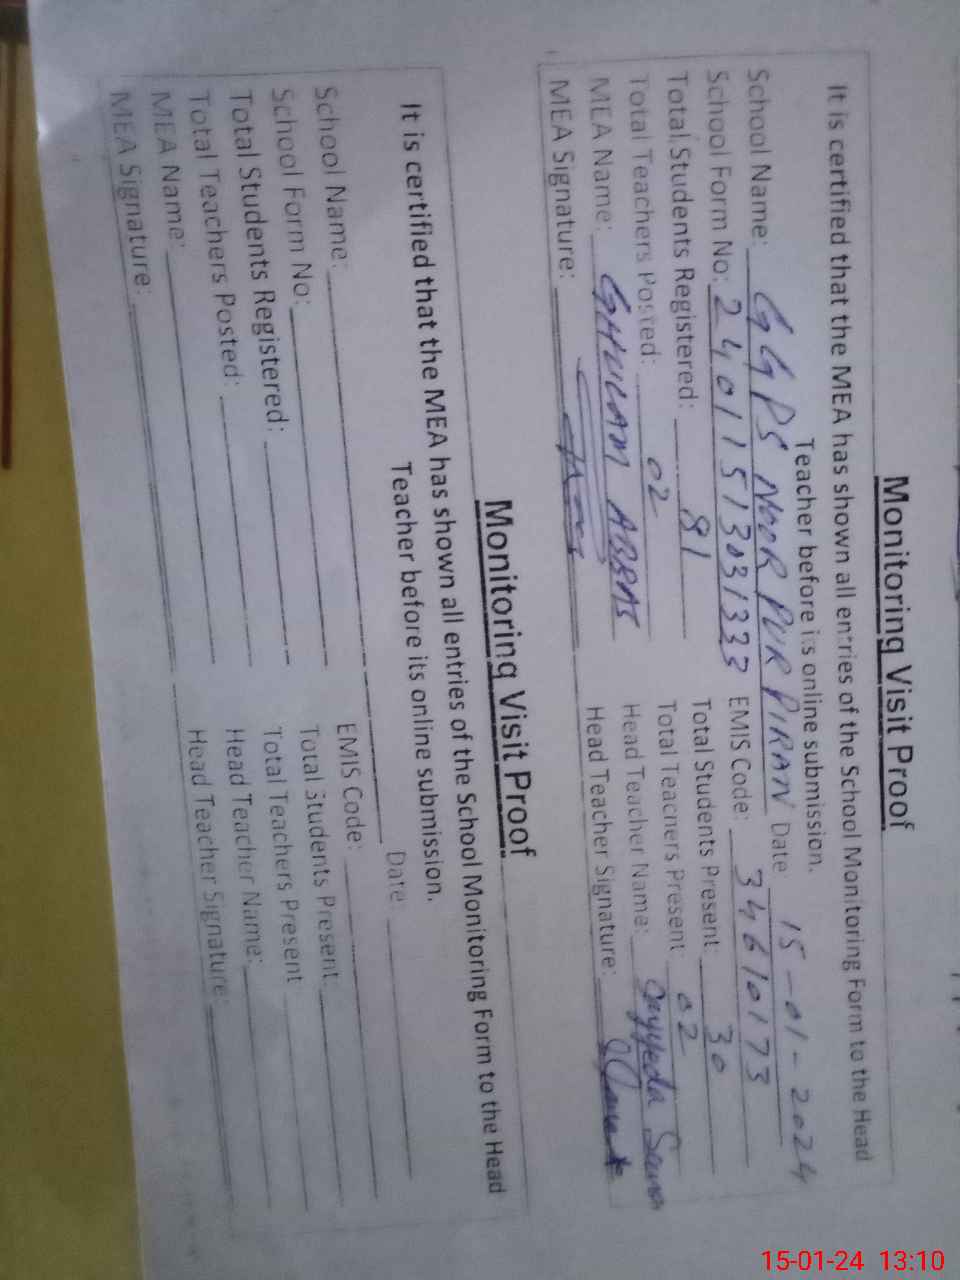 Monitoring Visit Proof
It is certified that the MEA has shown all entries of the School Monitoring Form to the Head
Teacher before its online submission.
School Name: GGPS NOOR PUR PIRAN Date 15-01-2024
School Form No: 24011513031333 EMIS Code: 34610173
Total Students Registered: 81 Total Students Present 30
Total Teachers Posted: 02 Total Teachers Present 02
MEA Name: GHULAM ABBAS Head Teacher Name: Sayyeda
MEA Signature: Head Teacher Signature:
Monitoring Visit Proof
It is certified that the MEA has shown all entries of the School Monitoring Form to the Head
Teacher before its online submission.
School Name: Date
School Form No: EMIS Code:
Total Students Registered: Total Students Present
Total Teachers Posted: Total Teachers Present
MEA Name: Head Teacher Name:
MEA Signature: Head Teacher Signature:
15-01-24 13:10